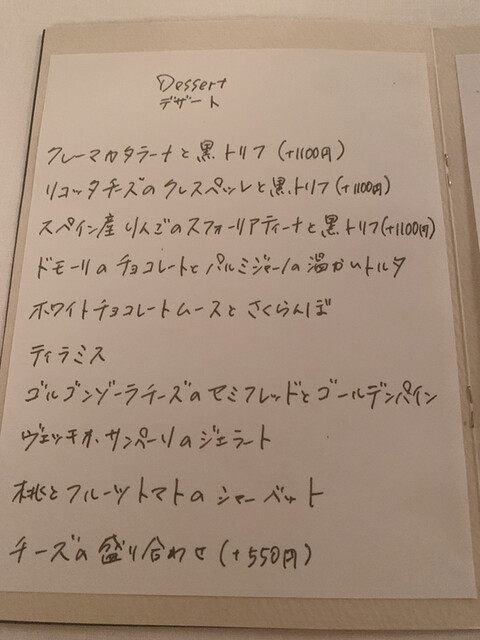 Dessert
デザート
クレーマカタラーナと黒トリフ(+1100円)
リコッタチーズのクレスペッレと黒トリフ(+1100円)
スペイン産りんごのスフォーリアティーナと黒トリフ(+1100円)
ドモーリのチョコレートとパルミジャーノの温かいトルタ
ホワイトチョコレートムースとさくらんぼ
ティラミス
ゴルゴンゾーラチーズのセミフレッドとゴールデンパイン
ヴェッキオ・サンペーリのジェラート
桃とフルーツトマトのシャーベット
チーズの盛り合わせ(+550円)